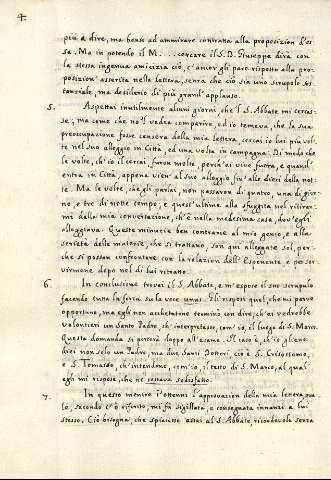 4.
più à dire, ma bensì ad ammirare contratta alla proposizion d'es-
sa. Ma in potendo il M. .... cercare il S. D. Giuseppe dirà con
la stessa ingenua amicizia ciò, ch'anior gli pare rispetto alla pro-
posizion' asserita nella lettera, senza che ciò sia uno scrupolo es-
senziale, ma desiderio di più grand'applauso.
5. Aspettai inutilmente alcuni giorni che'l S. Abbate mi cercas-
se; ma come che no'l vedea comparire, ed io temeva, che la sua
preoccupazione fosse censora della mia lettera, cercai io lui più vol-
te nel suo alloggio in Città, ed una volta in campagna. Di modo che
le volte, ch'io il cercai furon molte, perch'ei vive fuora, e quand'
entra in Città, appena vien'al suo alloggio fin'alle dieci della not-
te. Ma le volte, che gli parlai, non passaron di quatro, una di gior-
no, e tre di notte tempo; e quest'ultime alla sfuggita nel ritirar-
mi della mia conversazione, ch'è nella medesima casa, dov'egli
alloggiava. Queste minucie ben contrarie al mio genio, e alla
serietà delle materie, che si trattano, son qui allegate sol, per-
che si possan confrontare con la relazion dell'Esponente e per ser-
virmene depo nel di lui ritratto.
6. In conclusione trovai il S. Abbate, e m'espose il suo scrupolo
facendo tutta la forza su la voce unus. Gli risposi quel, che mi parve
opportuno, ma egli non acchetatone terminò con dire, ch'ei vedrebbe
volentieri un Santo Padre, ch'interpretasse, com'io, il luogo di S. Marco.
Questa domanda si porterà doppo all'esame. Il caso è, ch'io gliene
diedi non solo un Padre, ma due Santi Dottori; ciò è S. Crisostomo,
e S. Tomaso, ch'intendono, com'io, il testo di S. Marco, al qual'
egli mi rispose, che ne restava sodisfatto.
7. In questo mentre j'ottenni l'approvazion della mia lettera, qua-
le, secondo c'è riferito, mi fù sigillata, e consegnata innanzi à lui
stesso. Ciò bisogna, che spiacesse assai al S. Abbate, ricordevole senza